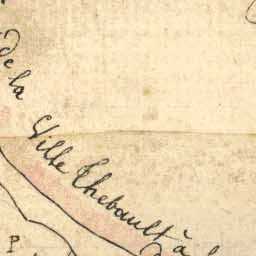 de la Ville Thebault à
P